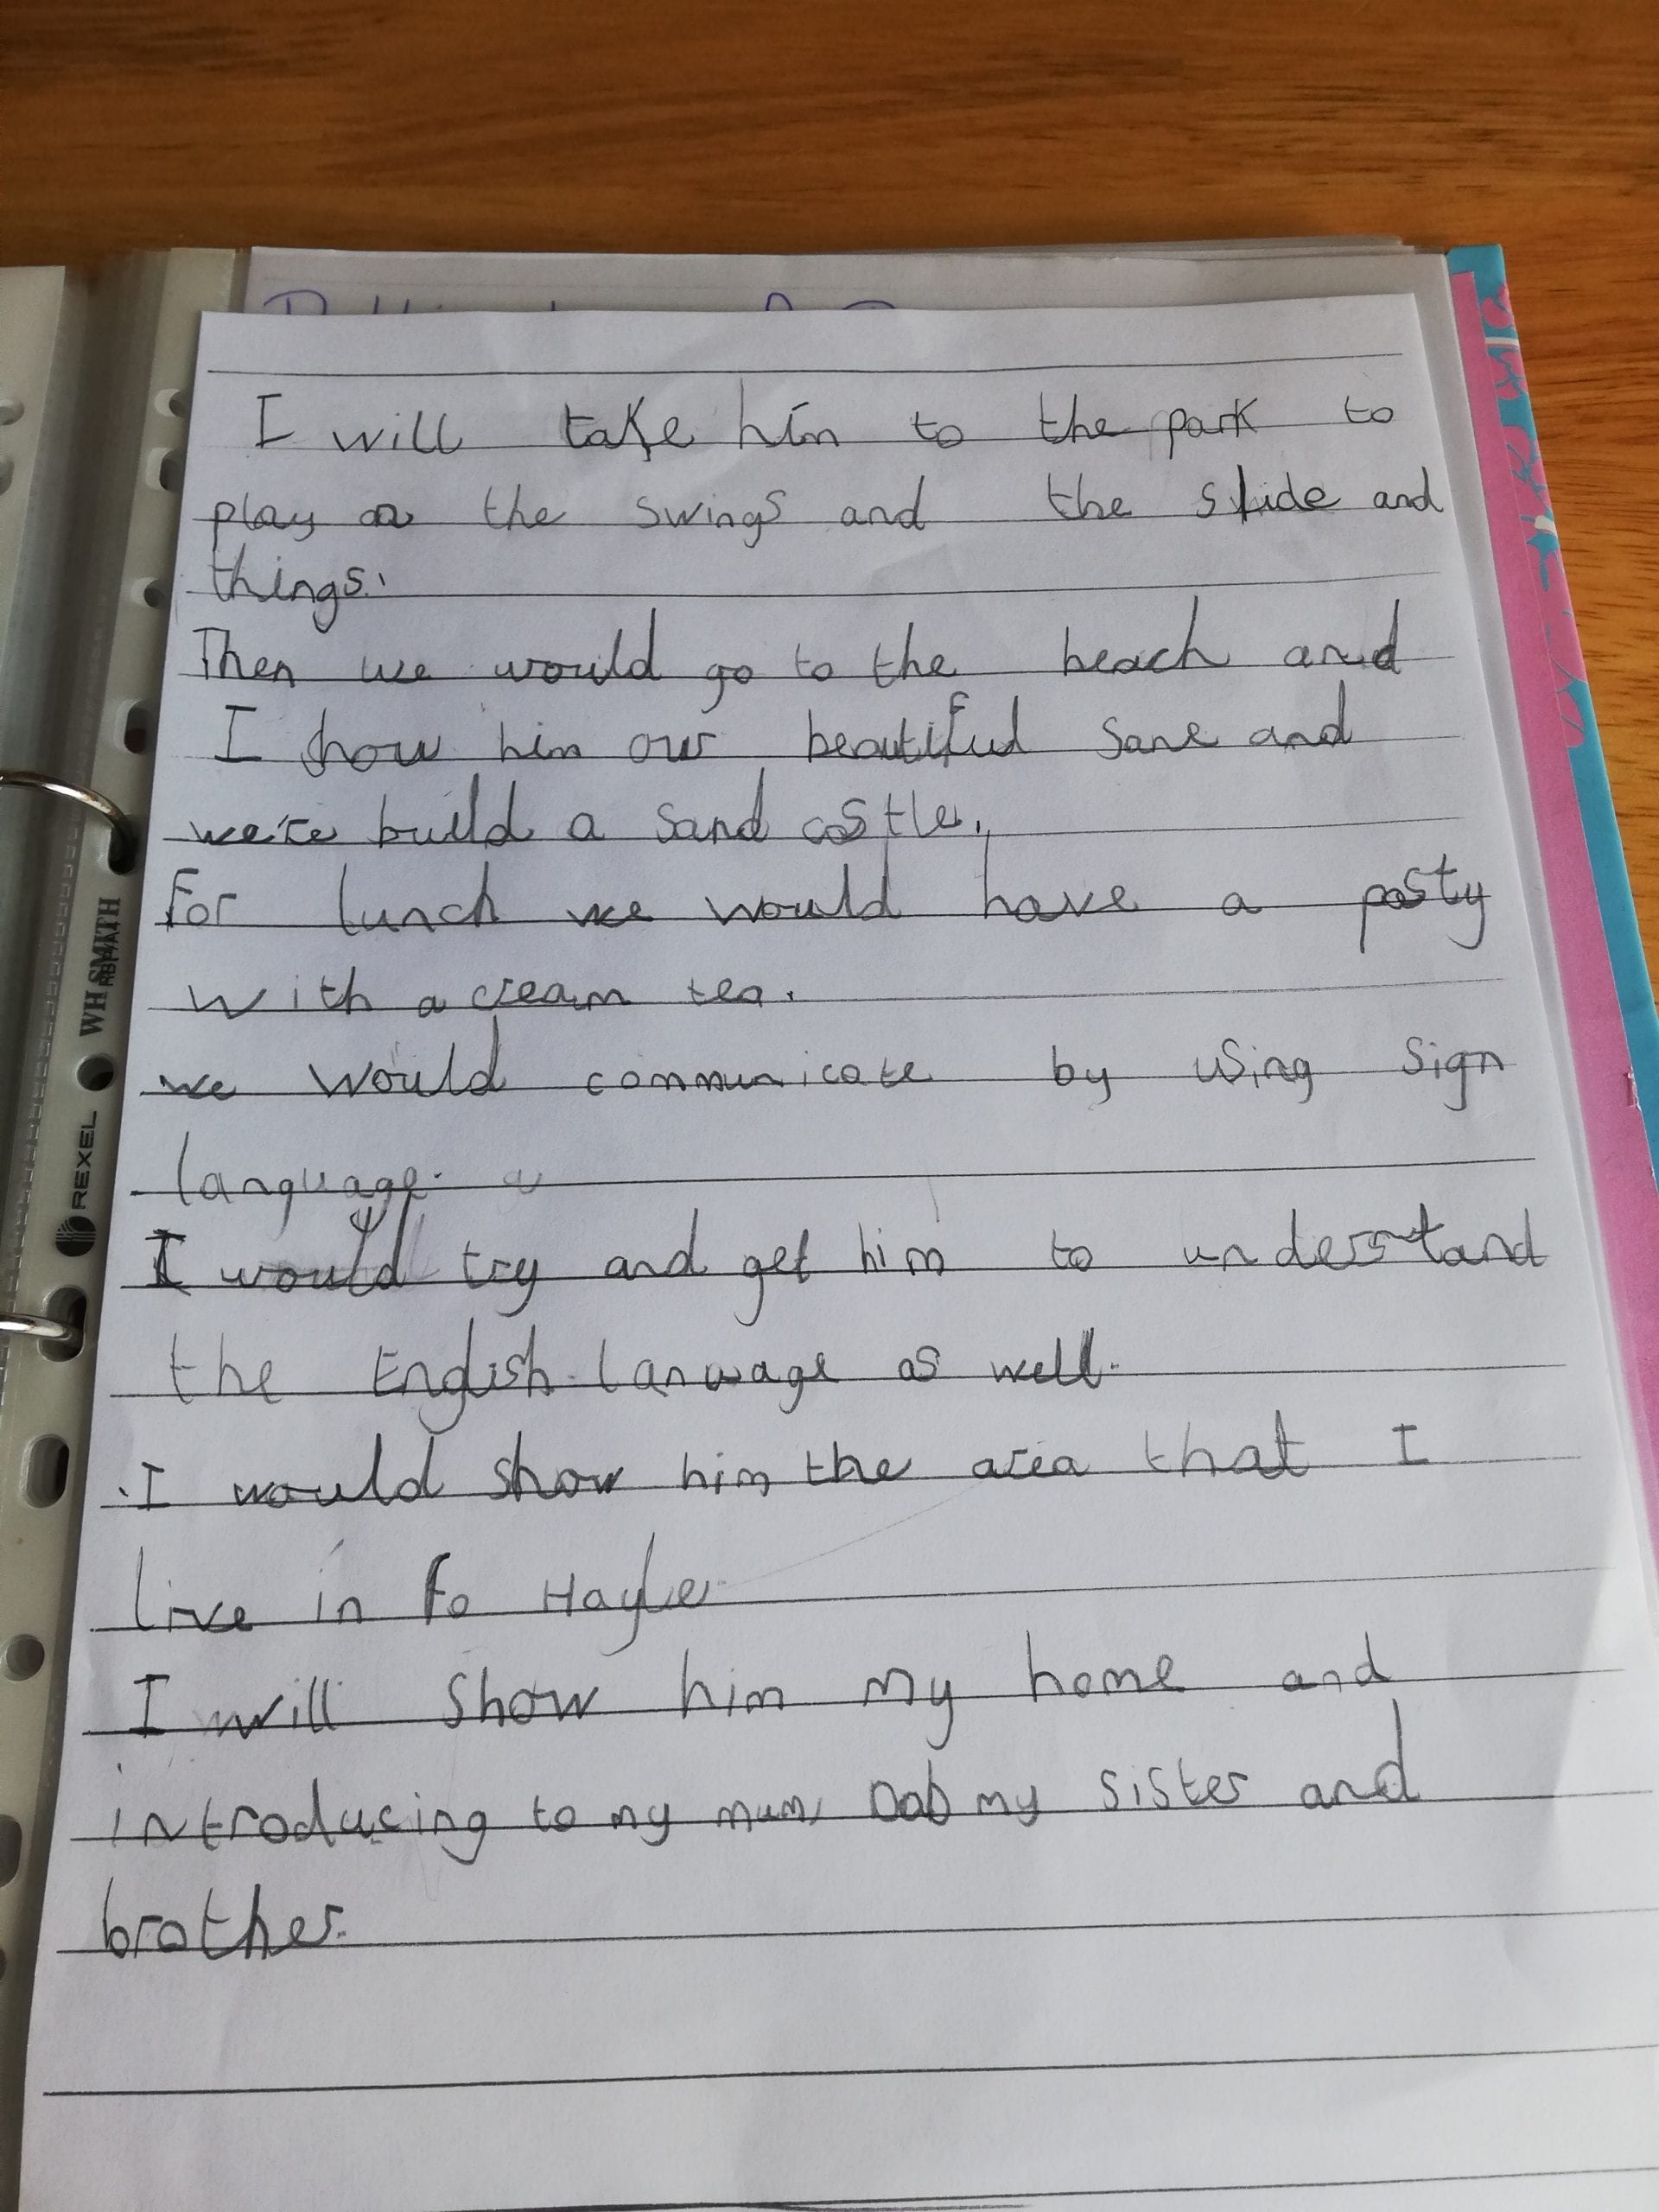 I will take him to the park to
play on the swings and the slide and
things.
Then we would go to the beach and
I show him our beautiful sane and
we're build a sand castle.
For lunch we would have a pasty
with a cream tea.
we would communicate by using sign
language.
I would try and get him to understand
the English lanuage as well.
I would show him the area that I
live in fo Hayle
I will show him my home and
introducing to my mum, Dad my sister and
brother.
WHSMITH
REXEL